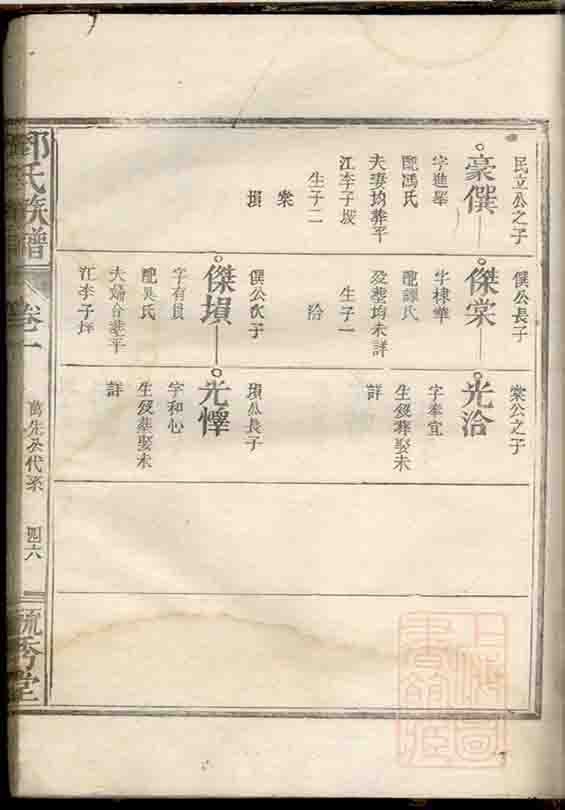 民立公之子
豪僎
字進舉
配馮氏
夫妻均葬平
江李子坡
生子二
棠
塤
僎公長子
傑棠
字棣華
配譚氏
歿塟均未詳
生子一
洽
僎公次子
傑塤
字有良
配吳氏
夫婦合塟平
江李子坪
棠公之子
光洽
字奉宜
生歿葬娶未
詳
塤公長子
光懌
字和心
生歿葬娶未
詳
氏族譜
卷一
萬先公代系
四六
毓秀堂